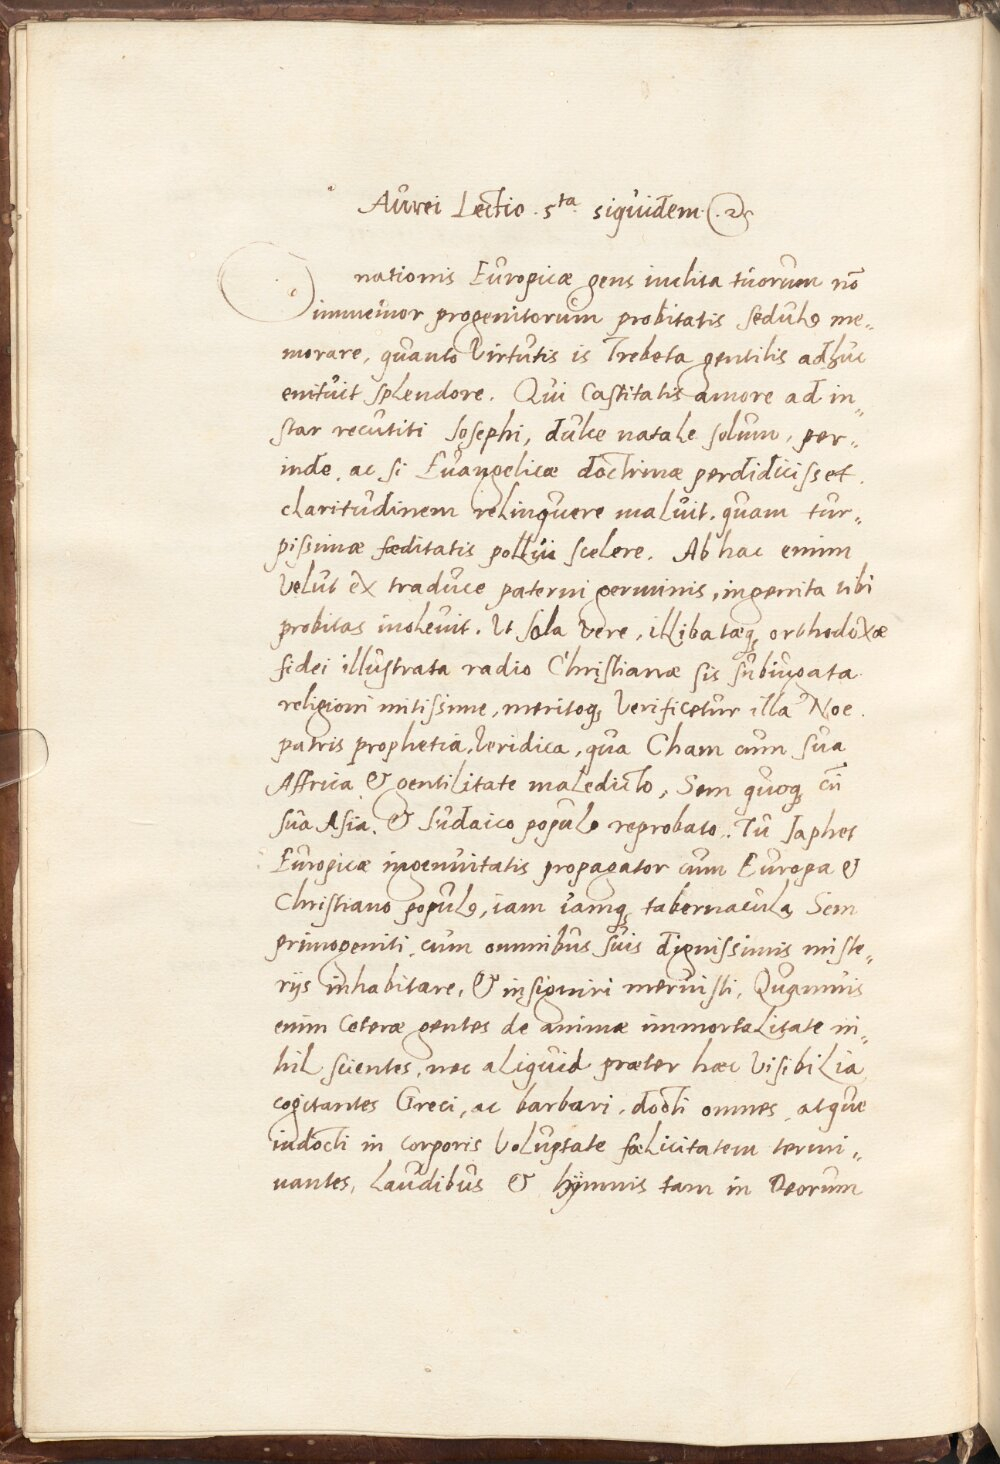 Aurei Lectio .5ta. siquidem (.2.)
O nationis Europicæ gens inclita tuorum nō
immemor progenitorum probitatis sedulo me„
morare, quanto Virtutis is Trebeta gentilis adhuc
enituit splendore. Qui Castitatis amore ad in„
star recutiti Josephi, dulce natale solum, per„
inde, ac si Euangelicæ doctrinæ perdidicisset
claritudinem relinquere maluit, quam tur„
pissimæ fæditatis pollui scelere. Ab hac enim
Velut ex traduce paterni germinis, ingenita tibi
probitas inolevit. Ut sola Vere, illibatæq; orthodoxæ
fidei illustrata radio Christianæ sis subiugata
religioni mitissime, meritoq; Verificetur illa Noe
patris prophetia, Veridica, qua Cham cum sua
Affrica & gentilitate maledicto, Sem quoq; cū
sua Asia, & Judaico populo reprobato. Tu Japhet
Europicæ ingenuitatis propagator cum Europa &
Christiano populo, iam iamq; tabernacula Sem
primogeniti, cum omnibus suis dignissimis miste„
rijs inhabitare, & insigniri meruisti, Quamuis
enim Ceteræ gentes de animæ immortalitate ni„
hil scientes, nec aliquid præter hæc Visibilia
cogitantes Greci, ac barbari, docti omnes, atque
indocti in corporis Voluptate fœlicitatem termi„
nantes, Laudibus & hÿmnis tam in Deorum